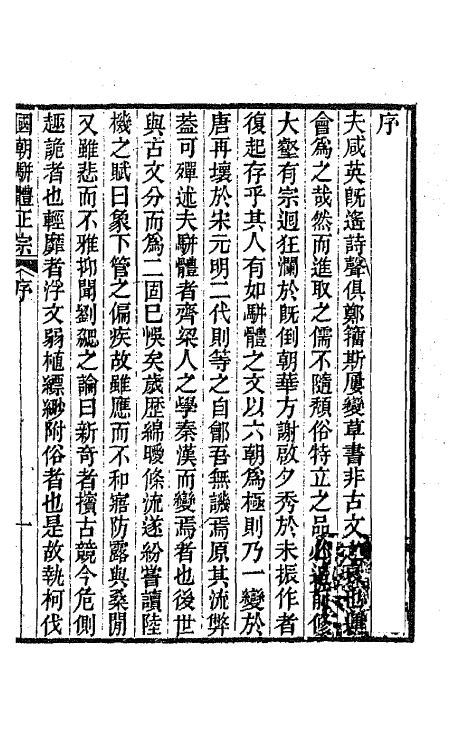 序
夫咸英旣遙詩聲俱鄭籀斯屢變草書非古文之衰也運
會爲之哉然而進取之儒不隨頹俗特立之品必追前修
大壑有宗迴狂瀾於旣倒朝華方謝啟夕秀於未振作者
復起存乎其人有如駢體之文以六朝爲極則乃一變於
唐再壞於宋元明二代則等之自鄶吾無譏焉原其流弊
葢可殫述夫駢體者齊梁人之學秦漢而變焉者也後世
與古文分而爲二固已悞矣歲歷綿曖條流遂紛嘗讀陸
機之賦曰象下管之偏疾故雖應而不和寤防露與桑閒
又雖悲而不雅抑聞劉勰之論曰新奇者擯古競今危側
趣詭者也輕靡者浮文弱植縹緲附俗者也是故執柯伐
國朝駢體正宗 序 一